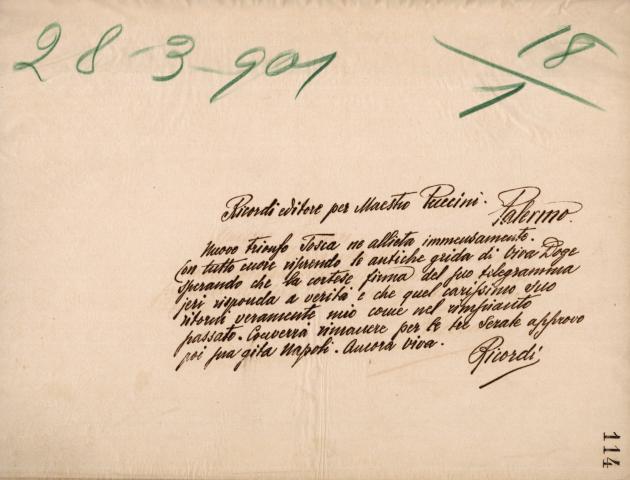 28-3-901
18
1
Ricordi editore per Maestro Puccini. Palermo.
Nuovo trionfo Tosca ne allieta immensamente.
Con tutto cuore riprendo le antiche grida di Viva Doge
sperando che la cortese firma del suo telegramma
jeri risponda a verità e che quel carissimo suo
ritorni veramente mio come nel rimpianto
passato. Converrà rimanere per le tre serate approvo
poi sua gita Napoli. Ancora viva.
Ricordi
114